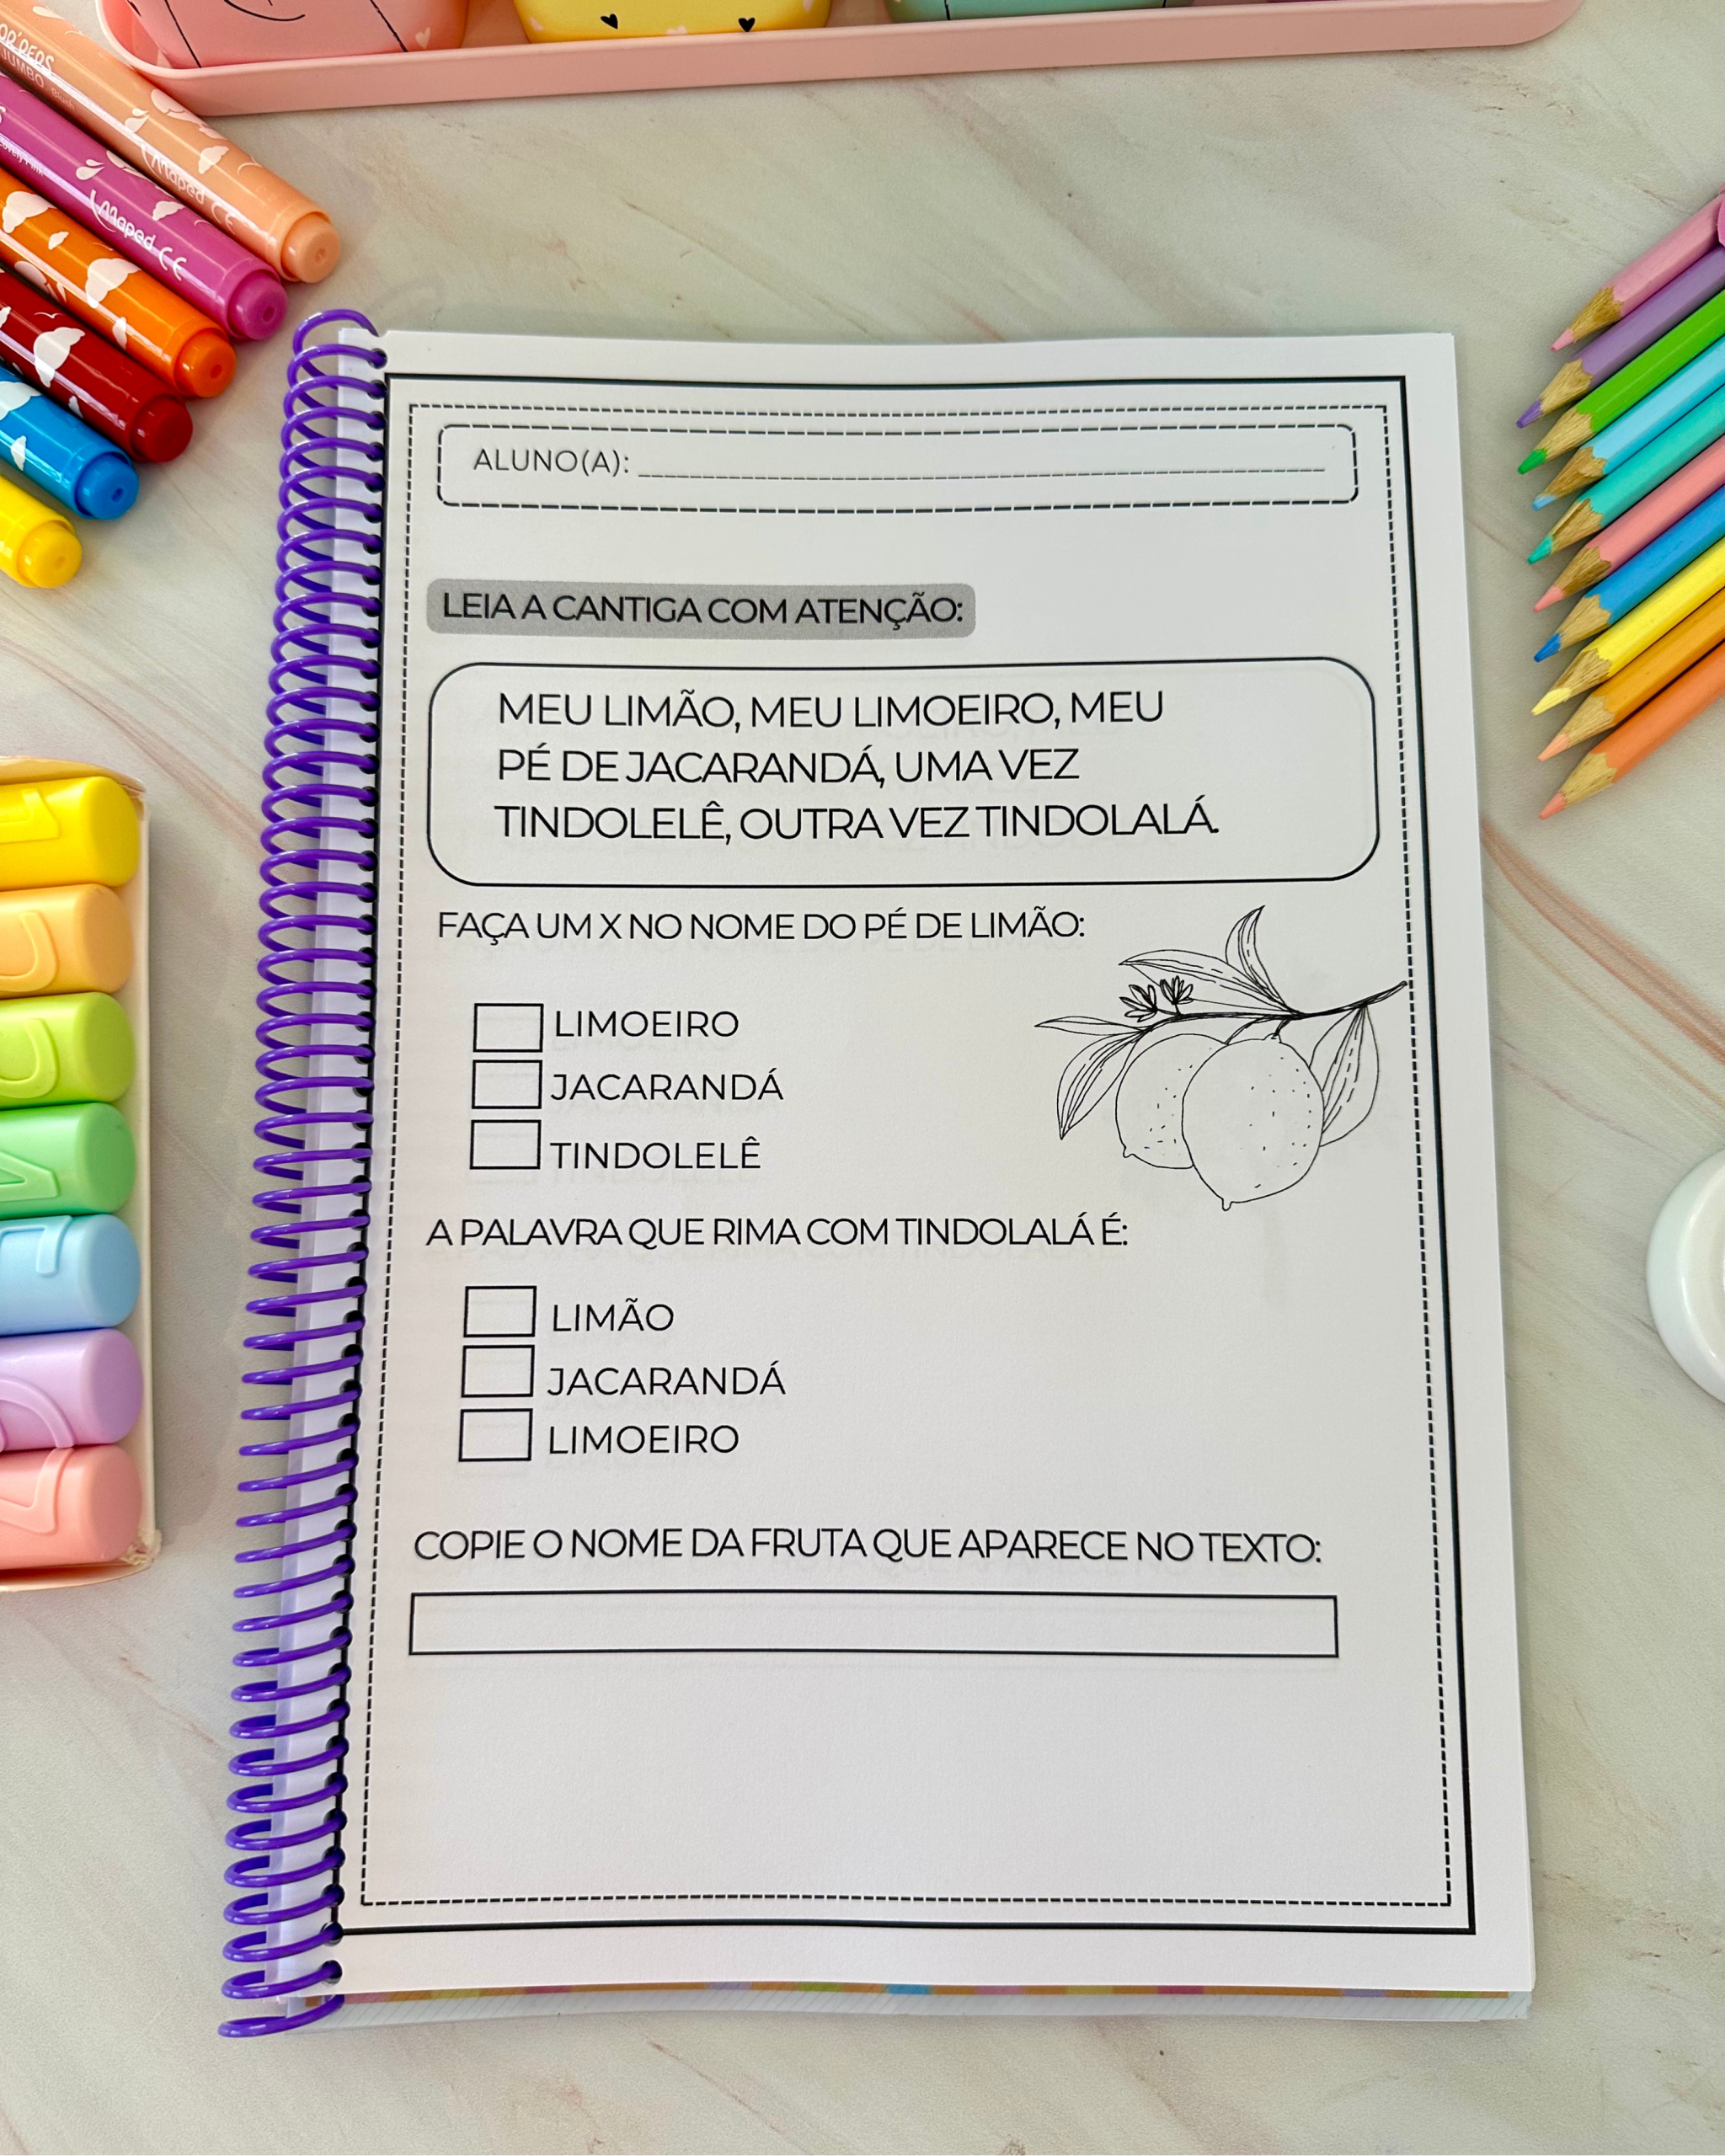 Maped CE
Maped CE
JUMBO
ALUNO(A):
LEIA A CANTIGA COM ATENÇÃO:
MEU LIMÃO, MEU LIMOEIRO, MEU
PÉ DE JACARANDÁ, UMA VEZ
TINDOLELÊ, OUTRA VEZ TINDOLALÁ.
FAÇA UM X NO NOME DO PÉ DE LIMÃO:
LIMOEIRO
JACARANDÁ
TINDOLELÊ
A PALAVRA QUE RIMA COM TINDOLALÁ É:
LIMÃO
JACARANDÁ
LIMOEIRO
COPIE O NOME DA FRUTA QUE APARECE NO TEXTO: